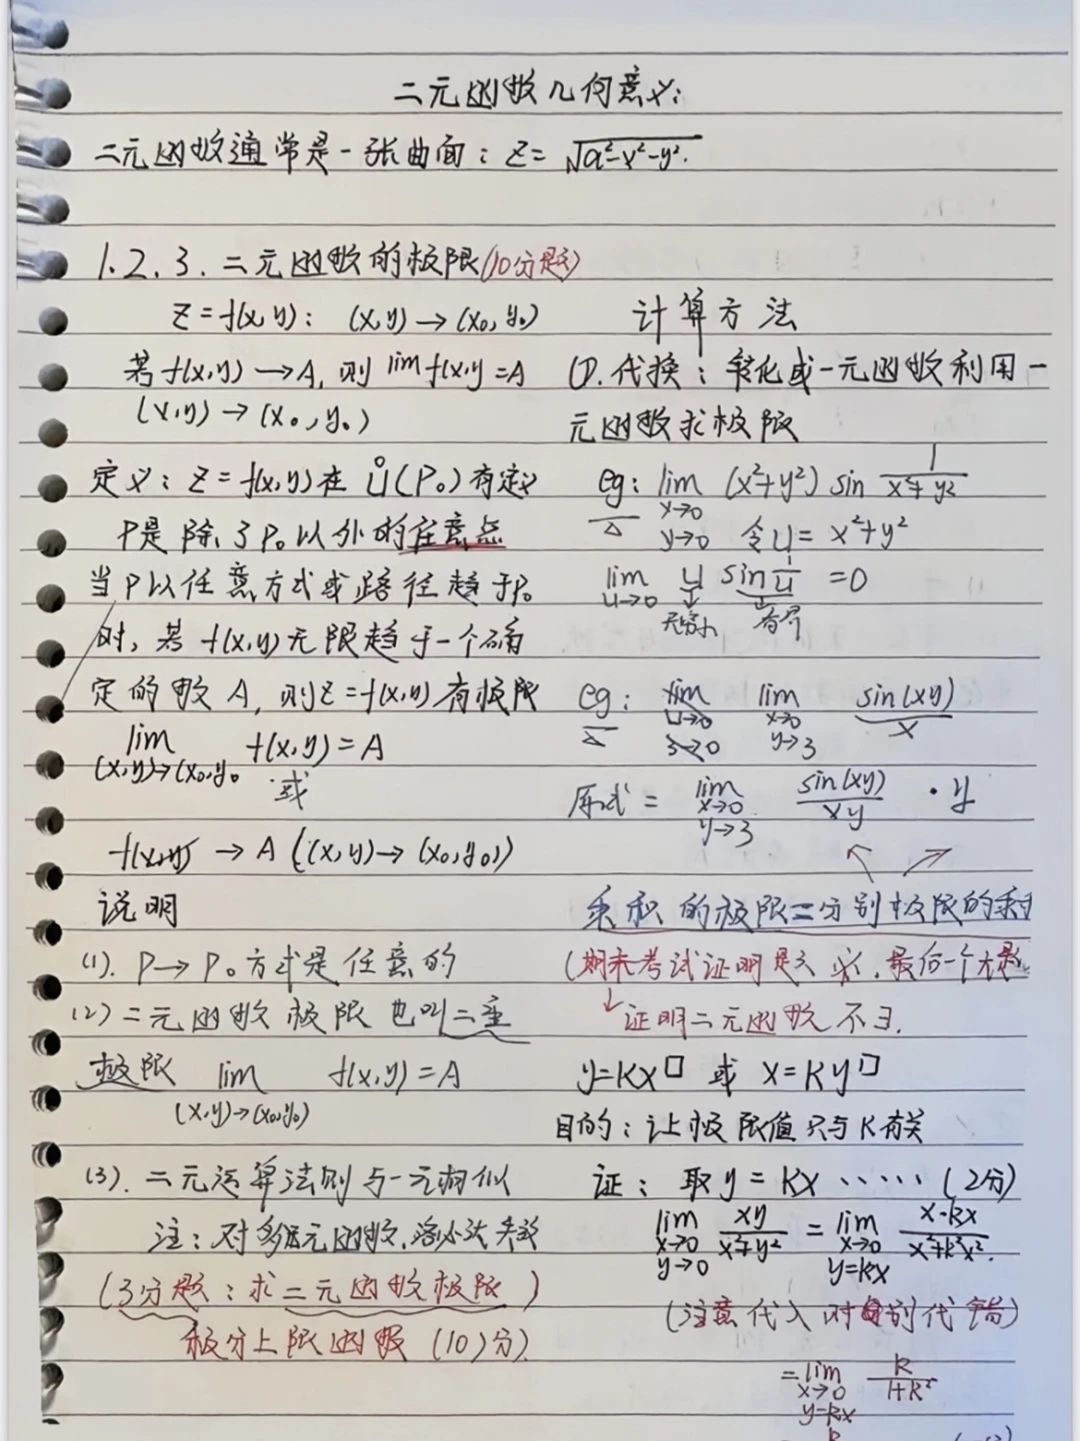 二元函数几何意义:
二元函数通常是一张曲面: z = √(a²-x²-y²).
1.2.3. 二元函数的极限(10分题)
z=f(x,y): (x,y)→(x₀,y₀)
若f(x,y)→A, 则 lim f(x,y =A
(x,y)→(x₀,y₀)
定义: z=f(x,y)在 Ů(P₀)有定义
P是除了P₀以外的任意点
当P以任意方式或路径趋于P₀
时, 若 f(x,y)无限趋于一个确
定的数A, 则z=f(x,y)有极限
lim f(x,y)=A
(x,y)→(x₀,y₀
或
f(x,y) → A ((x,y)→(x₀,y₀))
说明
(1). P→P₀方式是任意的
(2) 二元函数极限也叫二重
极限 lim f(x,y)=A
(x,y)→(x₀,y₀)
(3). 二元运算法则与一元相似
注: 对多元函数,洛必达失效
(3分题: 求二元函数极限)
积分上限函数 (10)分)
计算方法
①. 代换: 转化成一元函数利用一
元函数求极限
eg: lim (x²+y²) sin 1/(x²+y²)
x→0
y→0 令u= x²+y²
lim u sin 1/u =0
u→0 无穷小 有界
eg: lim lim sin(xy)/x
u→0 x→0
3→0 y→3
原式 = lim sin(xy)/xy · y
x→0
y→3
乘积的极限=分别极限的乘
(期末考试证明是 必, 最后一个大题
↓证明二元函数不∃.
y=kx□ 或 x=ky□
目的: 让极限值只与k有关
证: 取y=kx ······(2分)
lim xy/(x²+y²) = lim x·kx/(x²+k²x².
x→0 x→0
y→0 y=kx
(注意代入时别代错)
=lim k/(1+k²
x→0
y=kx